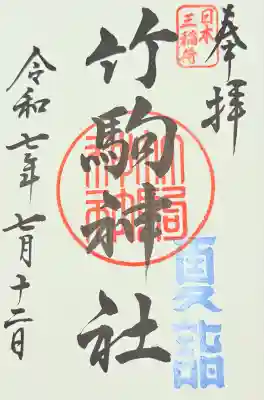 奉拝
日本
三稲荷
竹駒神社
夏詣
令和七年七月十二日